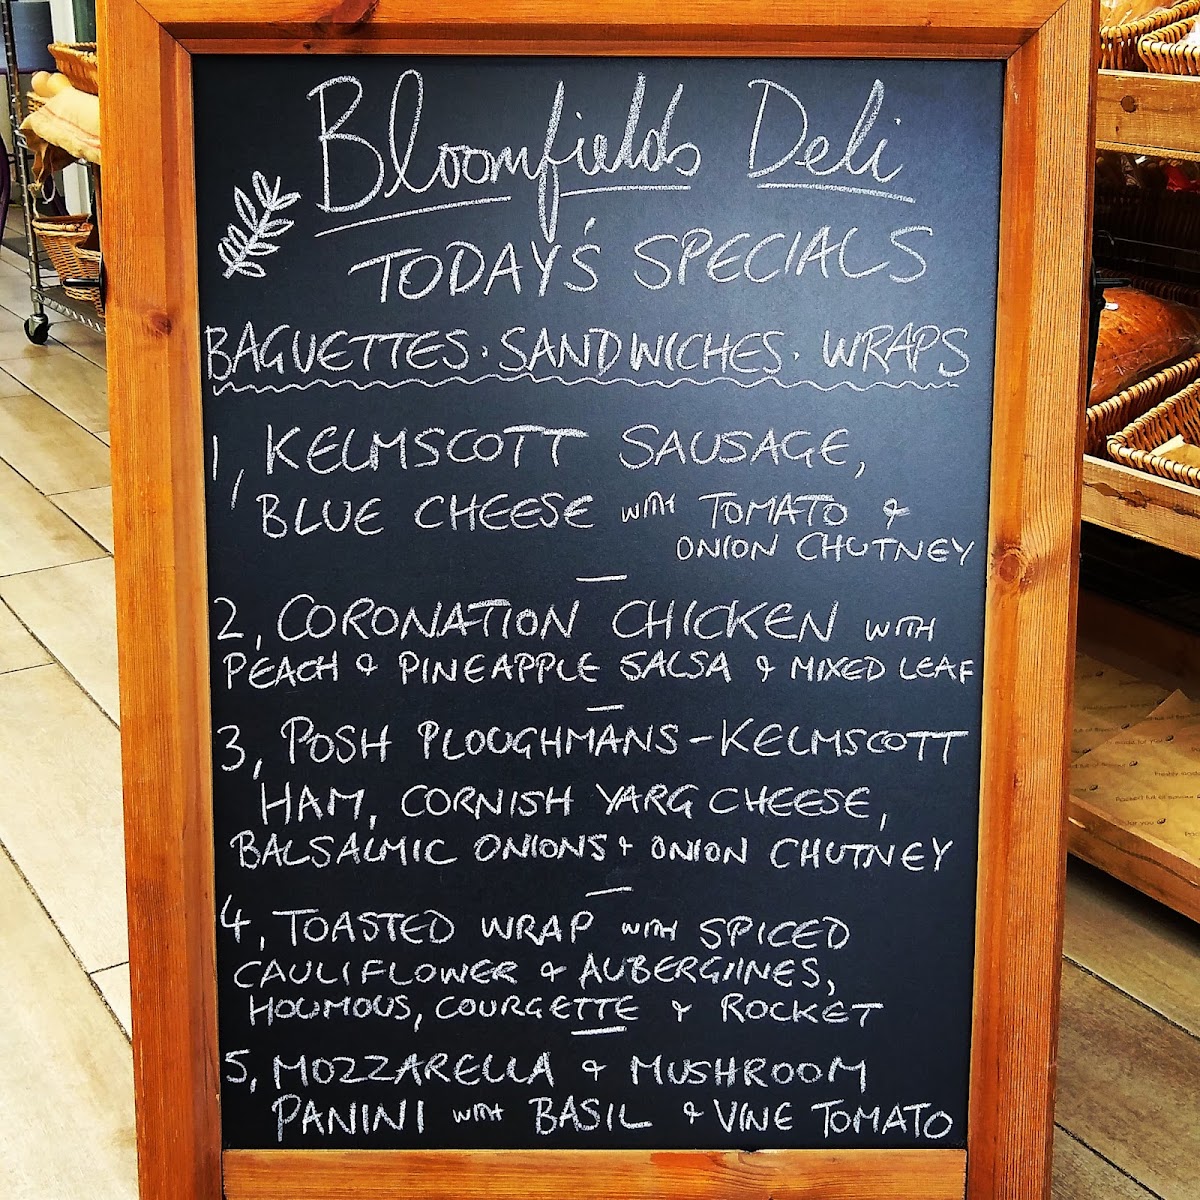 Bloomfields Deli
TODAY'S SPECIALS
BAGUETTES · SANDWICHES · WRAPS
1, KELMSCOTT SAUSAGE,
BLUE CHEESE WITH TOMATO &
ONION CHUTNEY
2, CORONATION CHICKEN WITH
PEACH & PINEAPPLE SALSA & MIXED LEAF
3, POSH PLOUGHMANS - KELMSCOTT
HAM, CORNISH YARG CHEESE,
BALSALMIC ONIONS + ONION CHUTNEY
4, TOASTED WRAP WITH SPICED
CAULIFLOWER & AUBERGIINES,
HOUMOUS, COURGETTE & ROCKET
5, MOZZARELLA & MUSHROOM
PANINI WITH BASIL & VINE TOMATO